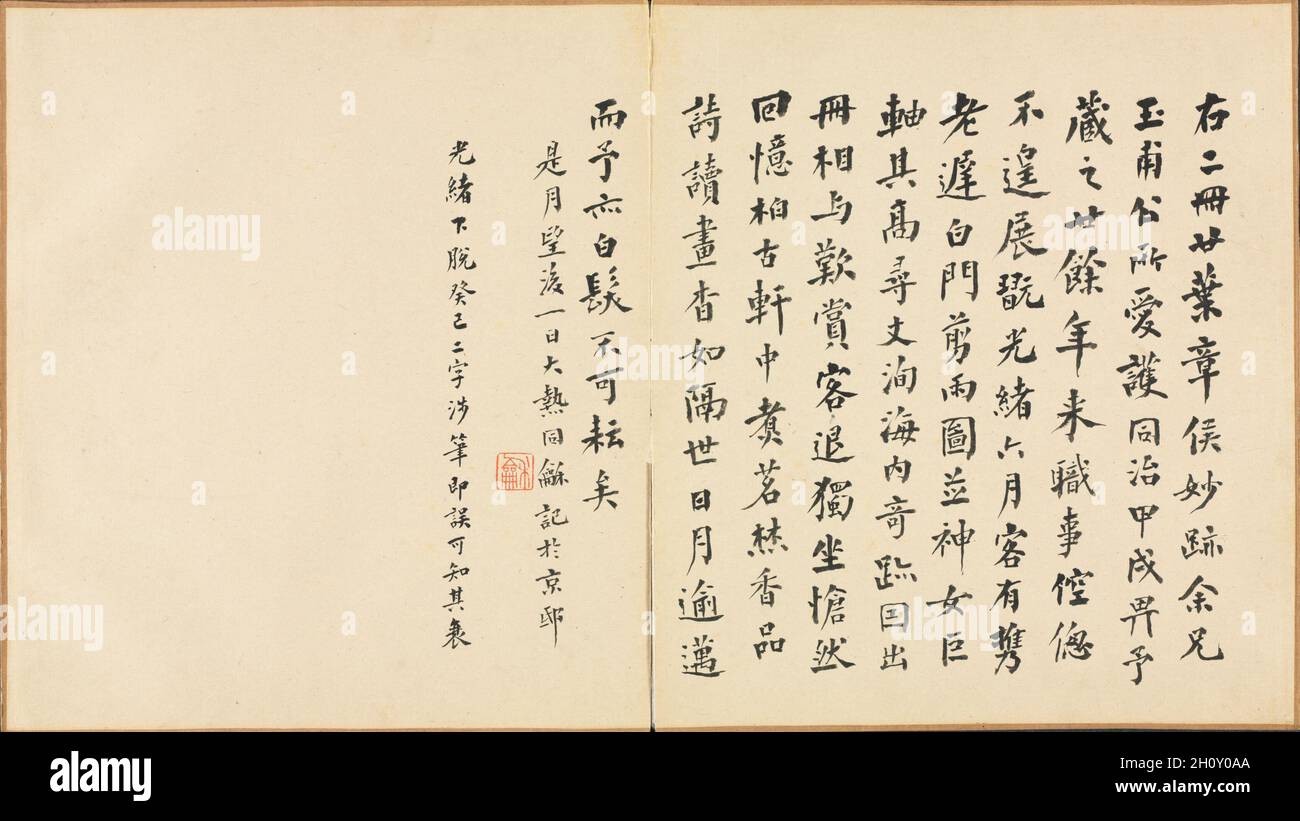 右二冊廿葉章侯妙跡余兄
玉甫公所愛護同治甲戌畀予
藏之廿餘年来職事倥傯
不遑展翫光緒六月客有携
老遲白門剪雨圖並神女巨
軸其高尋丈洵海内奇跡因出
冊相与歎賞客退獨坐愴然
回憶柏古軒中煑茗焚香品
詩讀畫杳如隔世日月逾邁
而予亦白髮不可耘矣
是月望後一日大熱同龢記於京邸
光緒下脫癸巳二字涉筆即誤可知其衰
alamy
alamy
Image ID: 2H0Y0AA
www.alamy.com